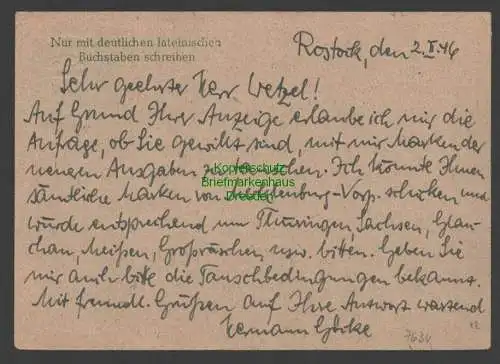 Nur mit deutlichen lateinischen
Buchstaben schreiben
Rostock, den 2.II.46
Sehr geehrter Herr Wetzel!
Auf Grund Ihrer Anzeige erlaube ich mir die
Anfrage, ob Sie gewillt sind, mit mir Marken der
neuen Ausgaben zu tauschen. Ich könnte Ihnen
Kopierschutz
Briefmarkenhaus
Dresden
sämtliche Marken von Mecklenburg-Vorp. schicken und
würde entsprechend um Thüringen, Sachsen, Glau-
chau, Meißen, Großräschen usw. bitten. Geben Sie
mir auch bitte die Tauschbedingungen bekannt.
Mit freundl. Grüßen auf Ihre Antwort wartend
Hermann
7634